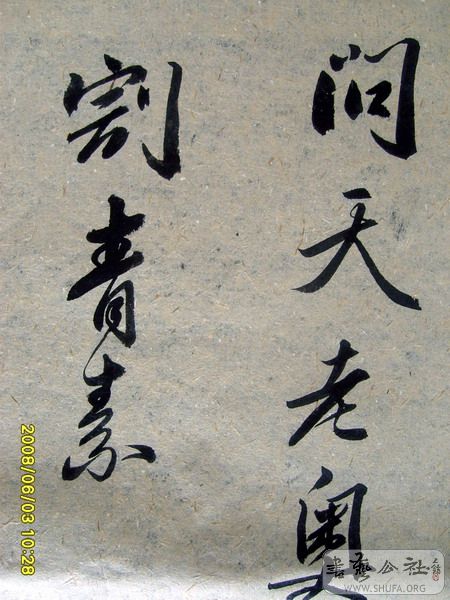 問天老奥
割青素
2008/06/03 10:28
書藝公社
WWW.SHUFA.ORG